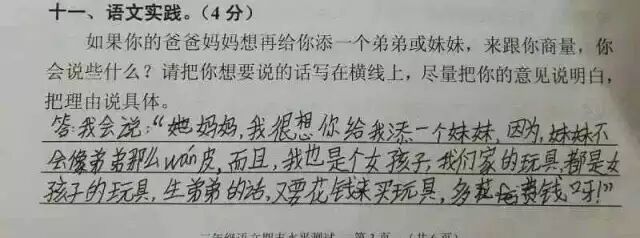 十一、语文实践。(4分)
如果你的爸爸妈妈想再给你添一个弟弟或妹妹，来跟你商量，你
会说些什么？请把你想要说的话写在横线上，尽量把你的意见说明白，
把理由说具体。
答：我会说：“妈妈，我很想你给我添一个妹妹，因为，妹妹不
会像弟弟那么wán皮，而且，我也是个女孩子，我们家的玩具，都是女
孩子的玩具，生弟弟的话，又要花钱来买玩具，多费钱呀！”
二年级语文期末水平测试 第3页 (共6页)